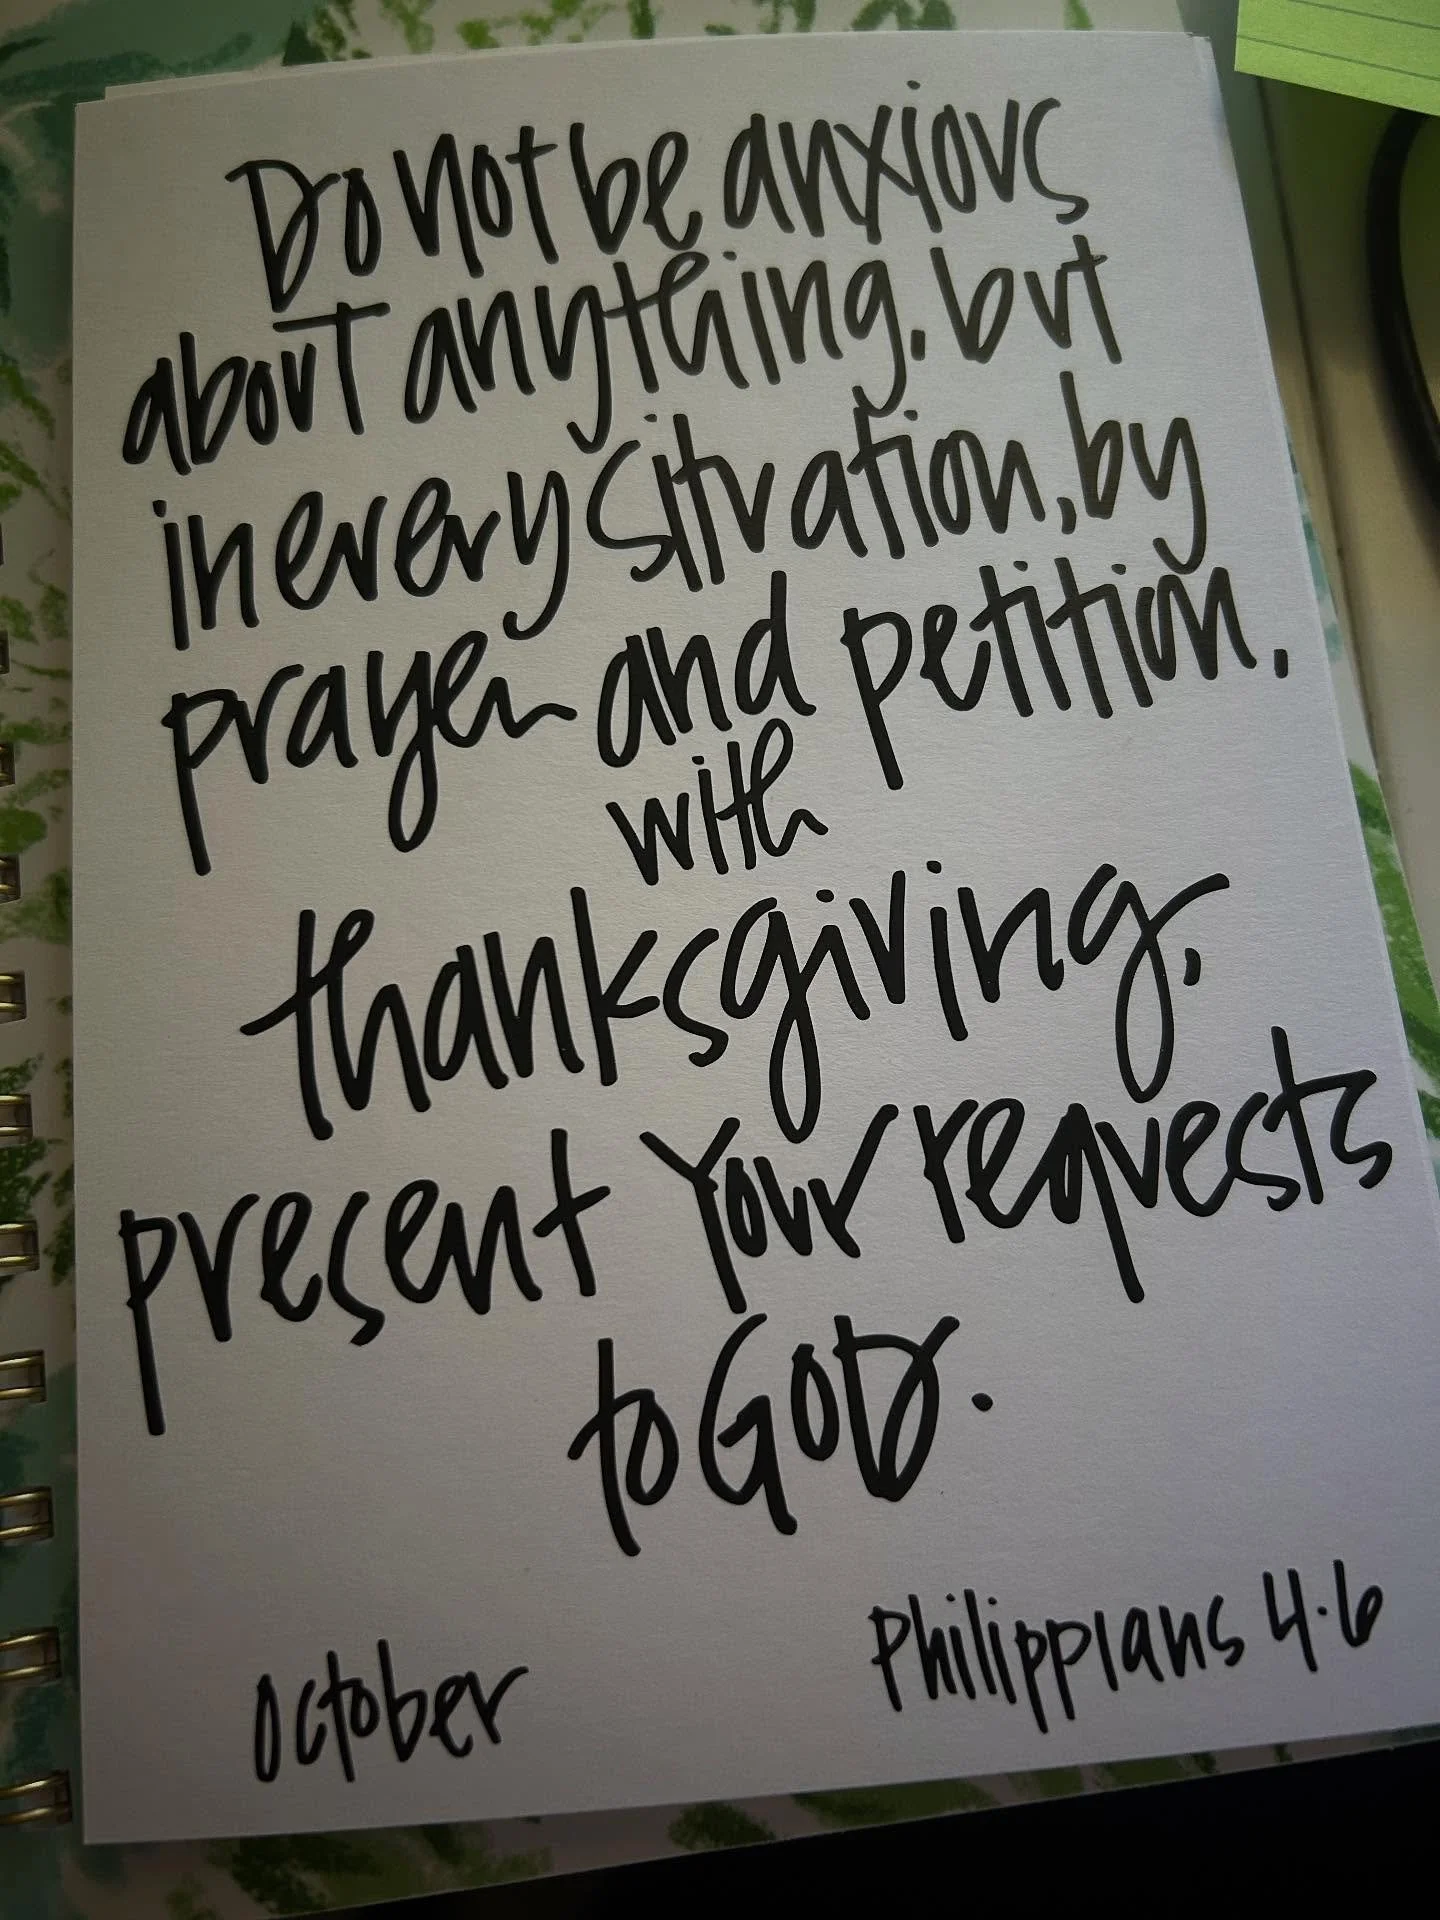 Do not be anxious
about anything, but
in every situation, by
prayer and petition,
with
thanksgiving,
present your requests
to GOD.
Philippians 4:6
October